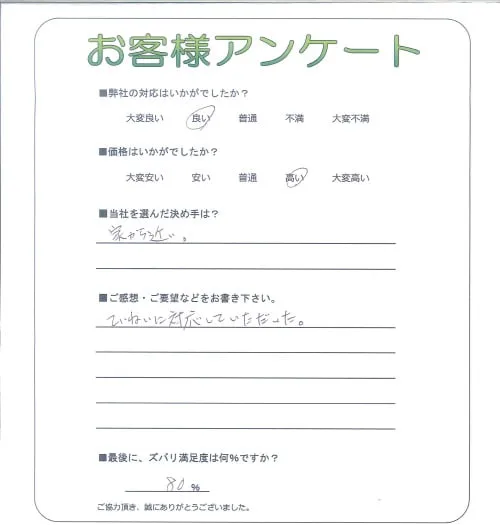 お客様アンケート
■弊社の対応はいかがでしたか？
大変良い 良い 普通 不満 大変不満
■価格はいかがでしたか？
大変安い 安い 普通 高い 大変高い
■当社を選んだ決め手は？
家から近い。
■ご感想・ご要望などをお書き下さい。
ていねいに対応していただいた。
■最後に、ズバリ満足度は何％ですか？
80 ％
ご協力頂き、誠にありがとうございました。